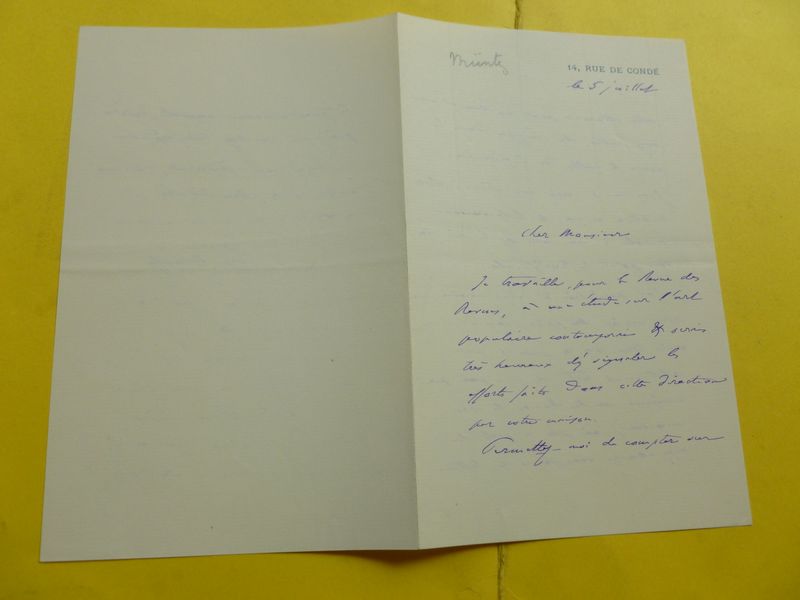 Müntz
14, RUE DE CONDÉ
le 5 juillet
Cher Monsieur
Je travaille, pour la Revue des
Revues, à une étude sur l'art
populaire contemporain & serais
très heureux d'y signaler les
efforts faits dans cette direction
par votre maison.
Permettez-moi de compter sur